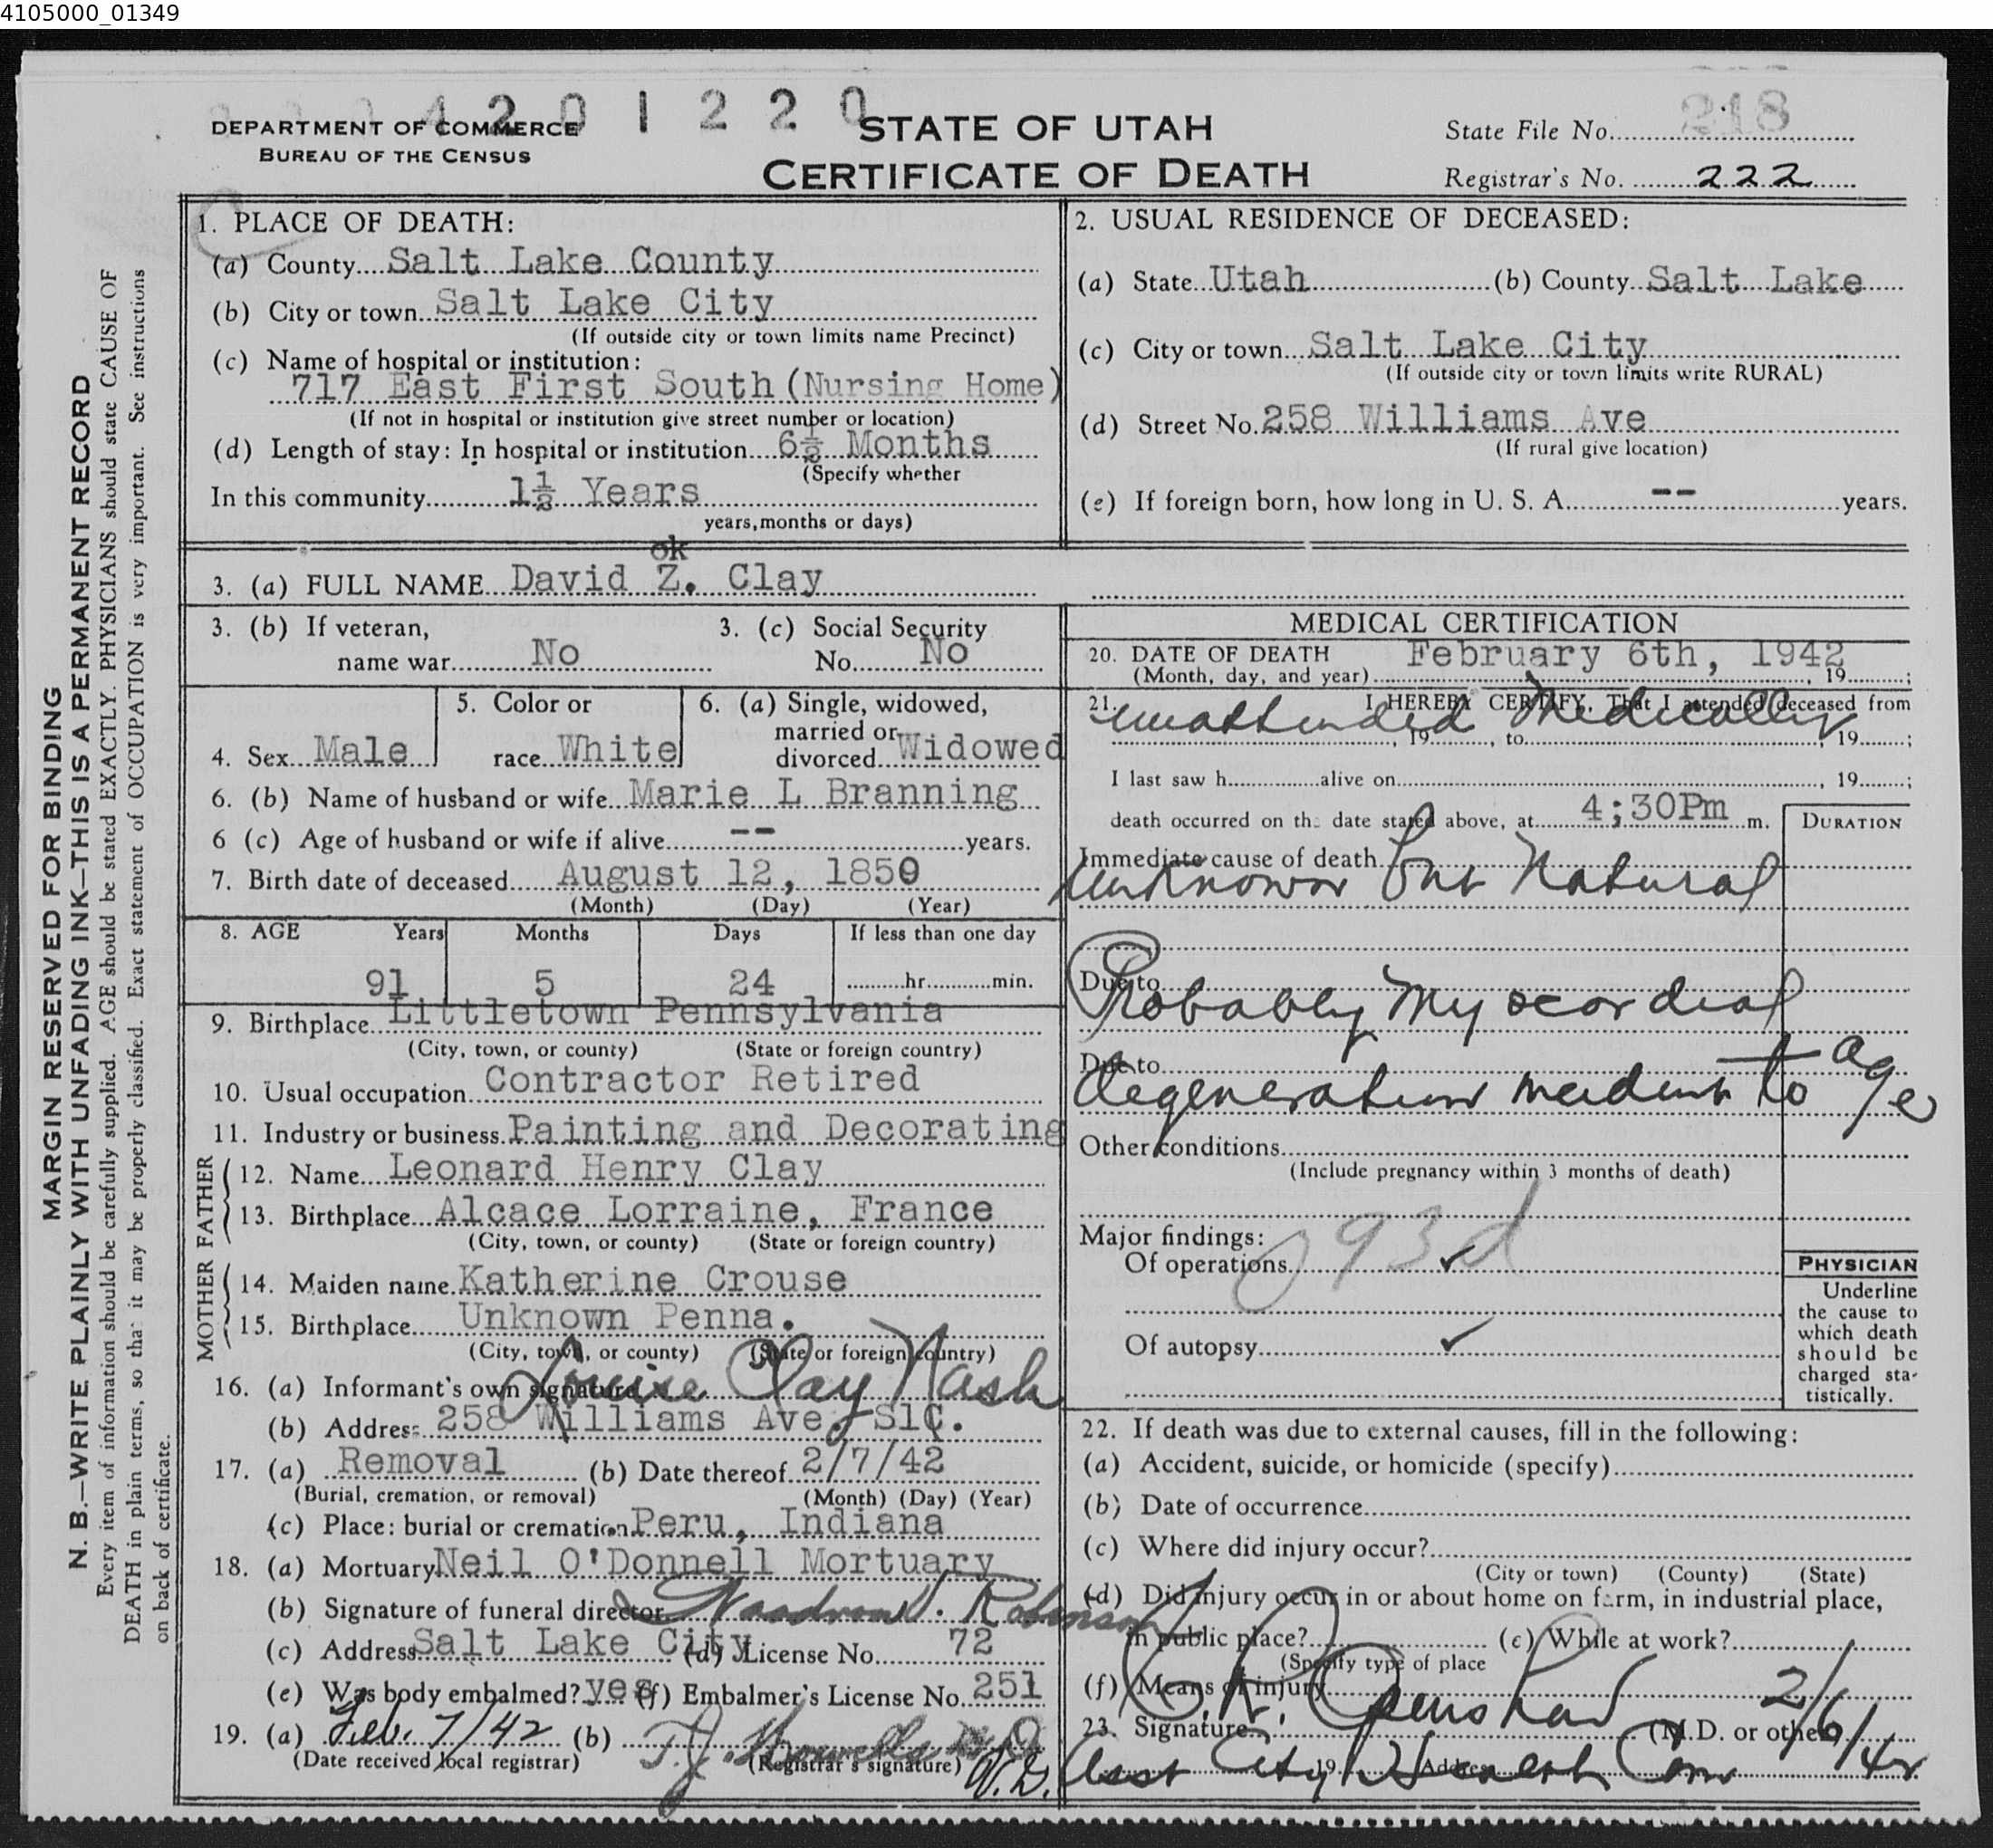 4105000_01349
4 2 0 1 2 2 0
DEPARTMENT OF COMMERCE
BUREAU OF THE CENSUS
STATE OF UTAH
CERTIFICATE OF DEATH
State File No. 218
Registrar's No. 222
MARGIN RESERVED FOR BINDING
N. B.—WRITE PLAINLY WITH UNFADING INK—THIS IS A PERMANENT RECORD
Every item of information should be carefully supplied. AGE should be stated EXACTLY. PHYSICIANS should state CAUSE OF
DEATH in plain terms, so that it may be properly classified. Exact statement of OCCUPATION is very important. See instructions
on back of certificate.
1. PLACE OF DEATH:
(a) County Salt Lake County
(b) City or town Salt Lake City
(If outside city or town limits name Precinct)
(c) Name of hospital or institution:
717 East First South (Nursing Home)
(If not in hospital or institution give street number or location)
(d) Length of stay: In hospital or institution 6½ Months
(Specify whether
In this community 1½ Years
years, months or days)
2. USUAL RESIDENCE OF DECEASED:
(a) State Utah (b) County Salt Lake
(c) City or town Salt Lake City
(If outside city or town limits write RURAL)
(d) Street No. 258 Williams Ave
(If rural give location)
(e) If foreign born, how long in U. S. A. -- years.
ok
3. (a) FULL NAME David Z. Clay
3. (b) If veteran,
name war No
3. (c) Social Security
No. No
4. Sex Male
5. Color or
race White
6. (a) Single, widowed,
married or
divorced Widowed
6. (b) Name of husband or wife Marie L Branning
6 (c) Age of husband or wife if alive -- years.
7. Birth date of deceased August 12, 1850
(Month) (Day) (Year)
8. AGE Years Months Days If less than one day
91 5 24 hr. min.
9. Birthplace Littletown Pennsylvania
(City, town, or county) (State or foreign country)
10. Usual occupation Contractor Retired
11. Industry or business Painting and Decorating
FATHER
12. Name Leonard Henry Clay
13. Birthplace Alcace Lorraine, France
(City, town, or county) (State or foreign country)
MOTHER
14. Maiden name Katherine Crouse
15. Birthplace Unknown Penna.
(City, town, or county) (State or foreign country)
16. (a) Informant's own signature Louise Clay Nash
(b) Address 258 Williams Ave, SlC.
17. (a) Removal (b) Date thereof 2/7/42
(Burial, cremation, or removal) (Month) (Day) (Year)
(c) Place: burial or cremation Peru, Indiana
18. (a) Mortuary Neil O'Donnell Mortuary
(b) Signature of funeral director Robinson
(c) Address Salt Lake City (d) License No. 72
(e) Was body embalmed? yes (f) Embalmer's License No. 251
19. (a) Feb. 7/42 (b) T.J. Howells M.D.
(Date received local registrar) (Registrar's signature)
MEDICAL CERTIFICATION
20. DATE OF DEATH February 6th, 1942
(Month, day, and year) , 19 ;
21. I HEREBY CERTIFY, That I attended deceased from
unattended Medically
, 19 , to , 19 ;
I last saw h alive on , 19 ;
death occurred on the date stated above, at 4;30Pm m.
DURATION
Immediate cause of death
unknown but Natural
Due to
Probably Myocardial
Due to
degeneration incident to age
Other conditions
(Include pregnancy within 3 months of death)
93d
Major findings:
Of operations
Of autopsy
PHYSICIAN
Underline
the cause to
which death
should be
charged sta-
tistically.
22. If death was due to external causes, fill in the following:
(a) Accident, suicide, or homicide (specify)
(b) Date of occurrence
(c) Where did injury occur?
(City or town) (County) (State)
(d) Did injury occur in or about home on farm, in industrial place,
in public place? (e) While at work?
(Specify type of place
(f) Means of injury
23. Signature Openshaw (M.D. or other) 2/6/42
19 Address
asst City Health Com